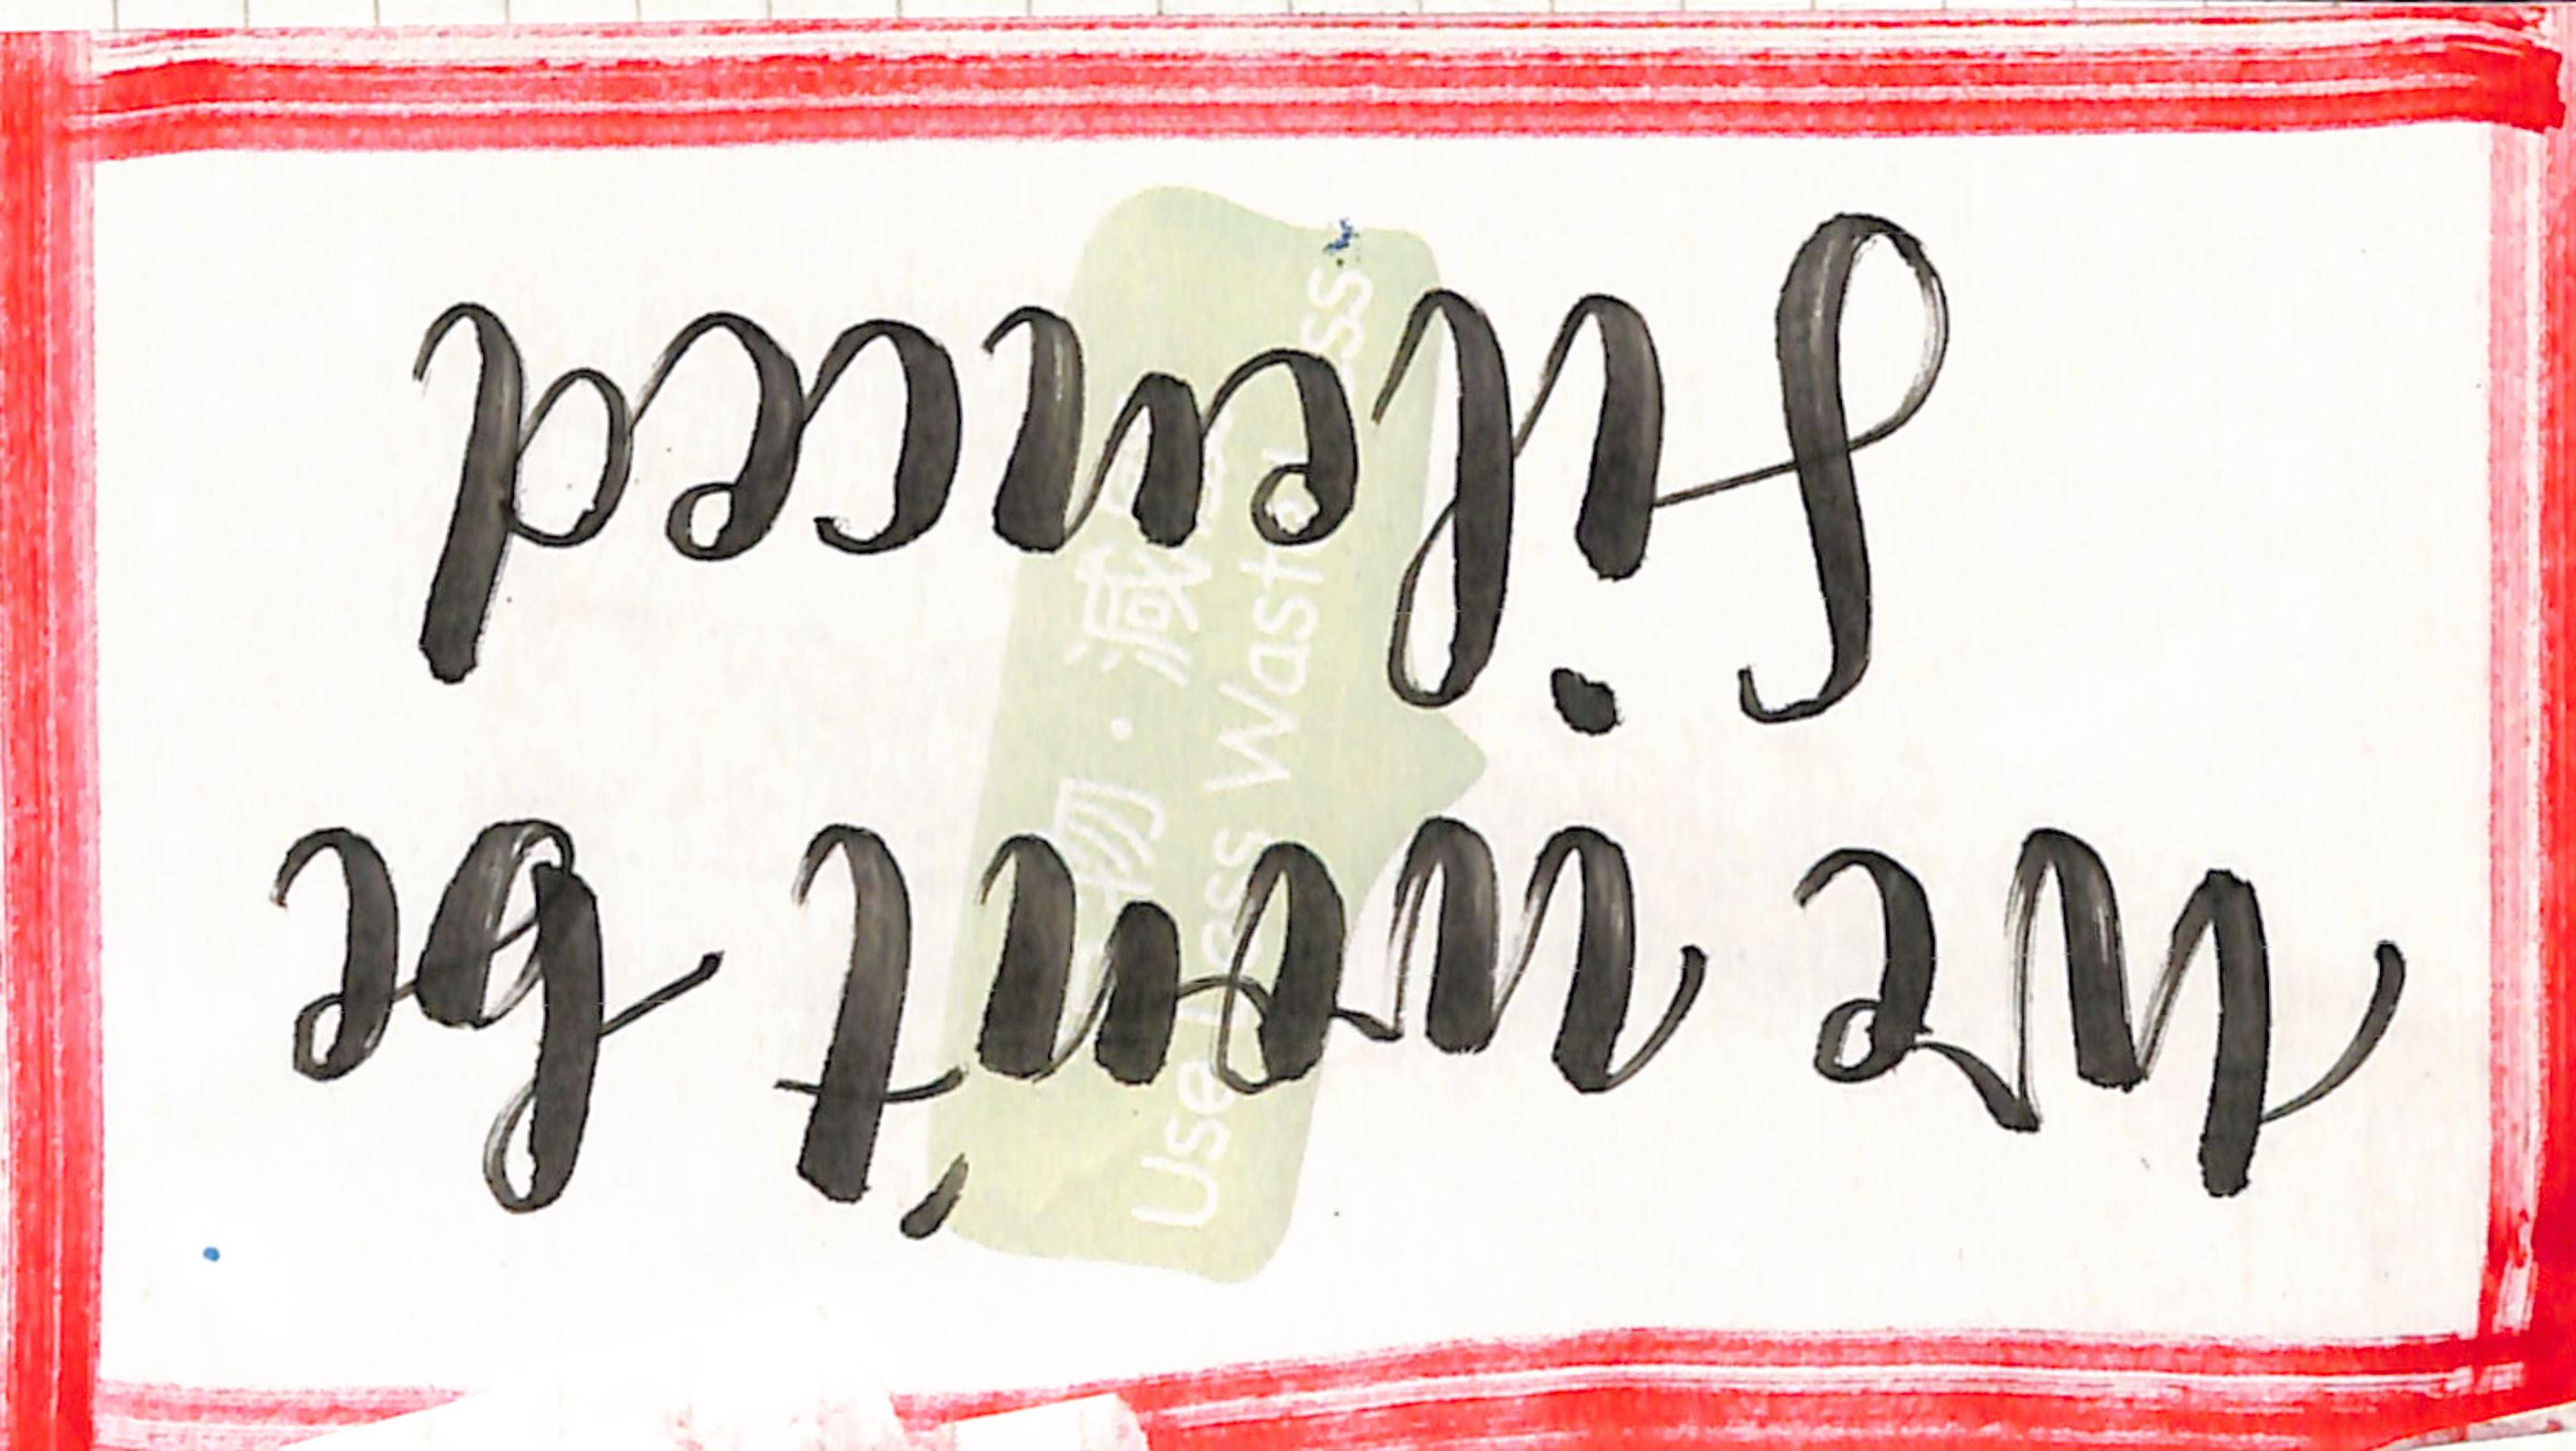 We won't be
Silenced
Use Less Waste Less
物·減